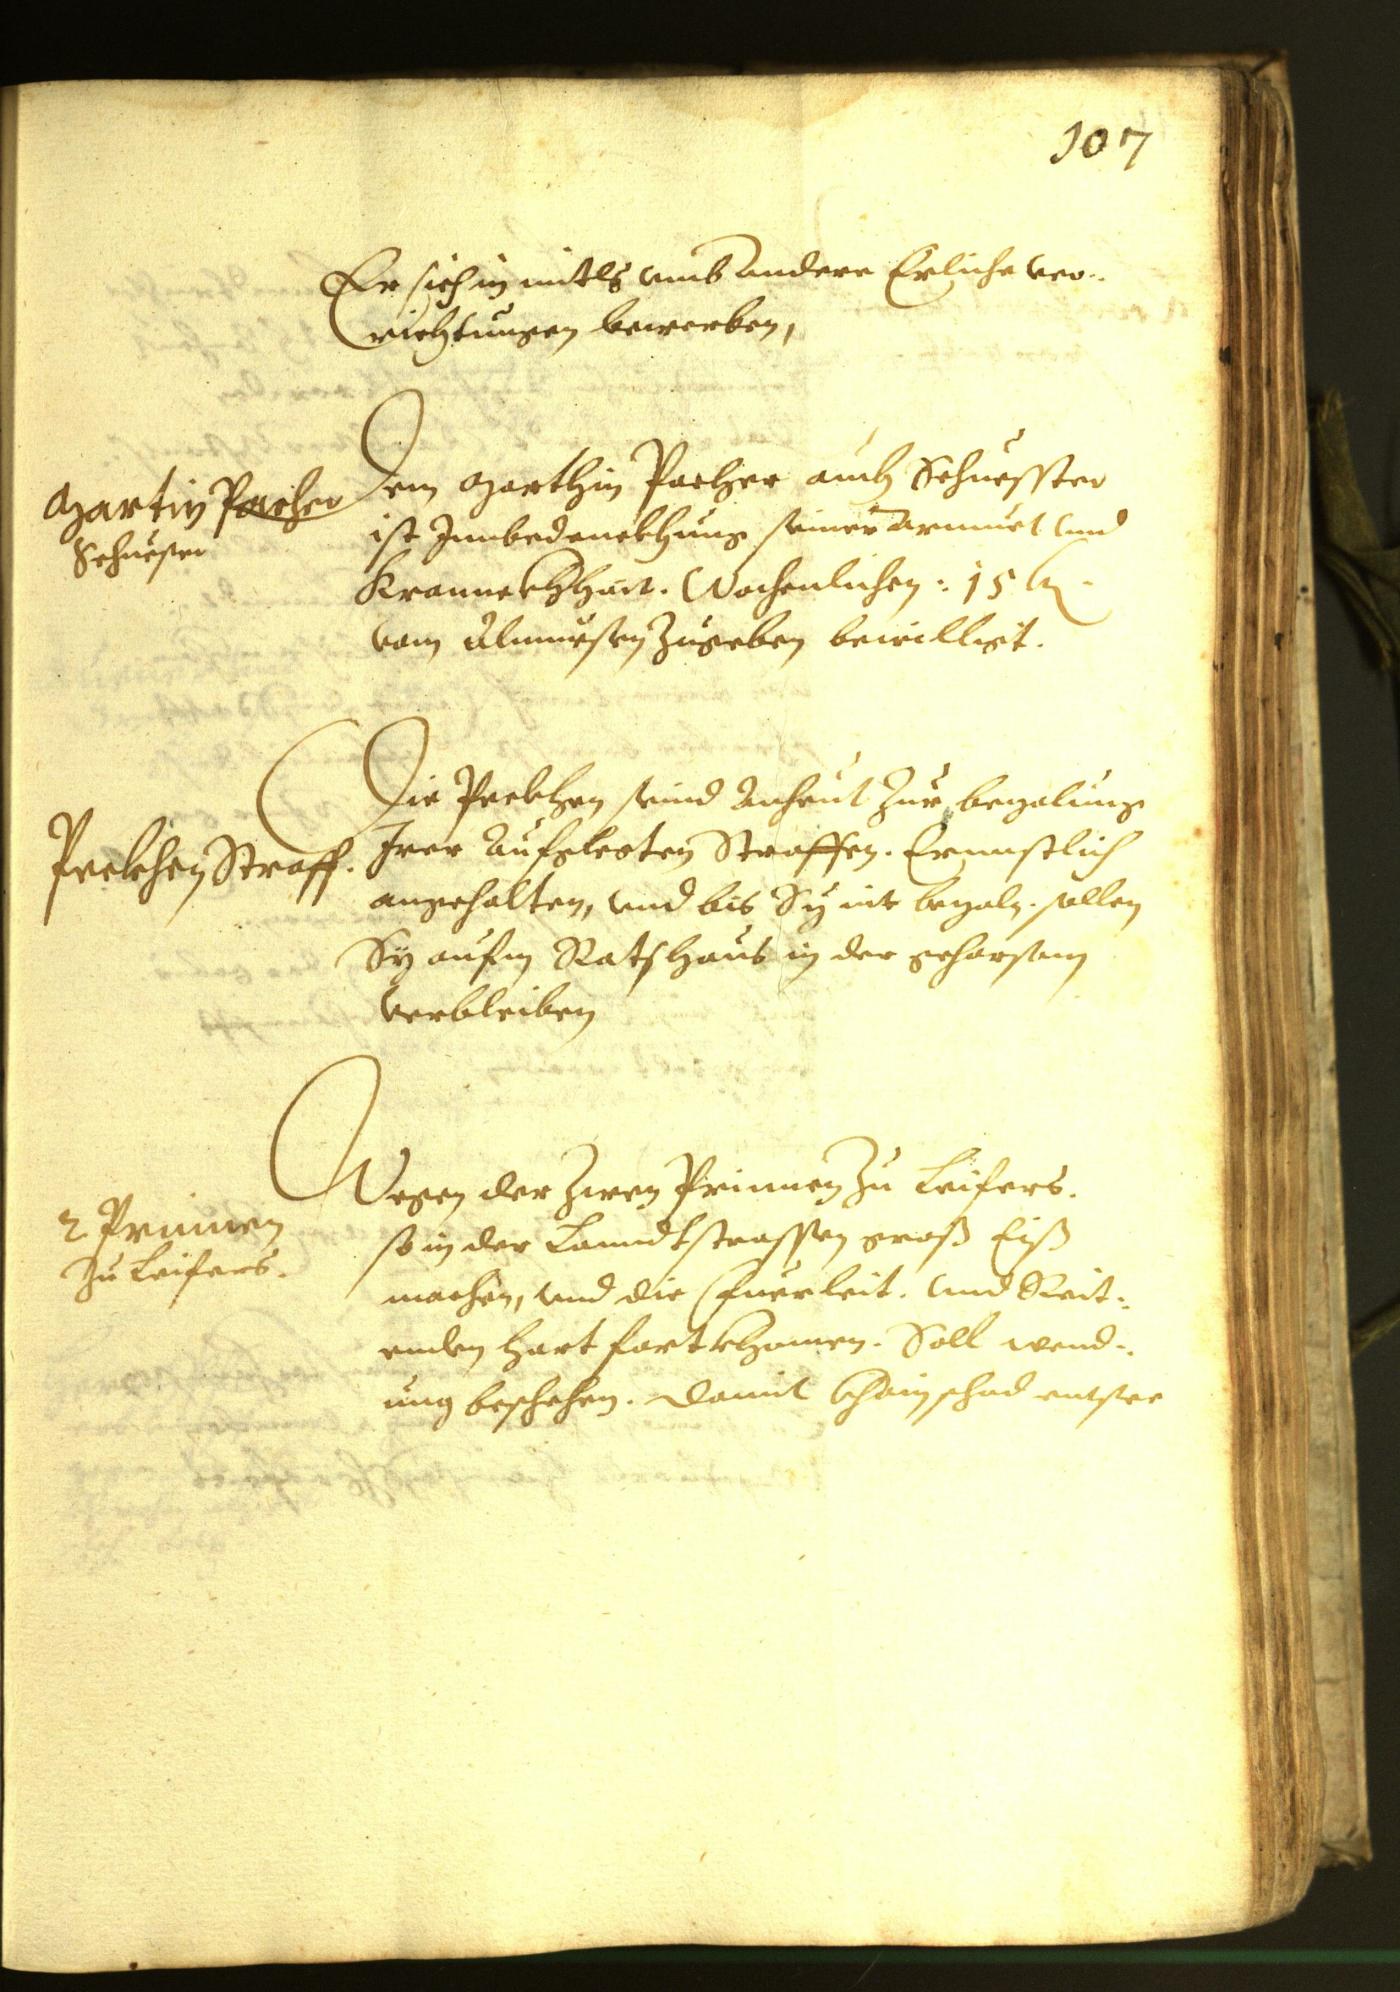 107
Er sich in mitls umb andere Erliche ver-
richtungen bewerben,
Martin Pacher
Schuester
Dem Marthin Pacher auch Schuesster
ist Innbedenckhung seiner armuet und
Kranneckhait. Wochenlichen: 15 kr.
vom Almuesen zugeben bewilligt.
Peckhen Straff.
Die Peckhen seind Anheut zur bezalung
Irer Aufgelegten Straffen. Ernnstlich
angehalten, und bis Sy nit bezaln. sollen
Sy aufm Ratshaus in der gehorsam
verbleiben
2 Prinnen
zu Leifers.
Wegen der zwen Prinnen zu Leifers.
so in der Lanndtstrassen gross Eiß
machen, und die Fuerleit. und Reit-
enden hart fortkhomen. Soll wend-
ung beschehen. damit khain schad entstee